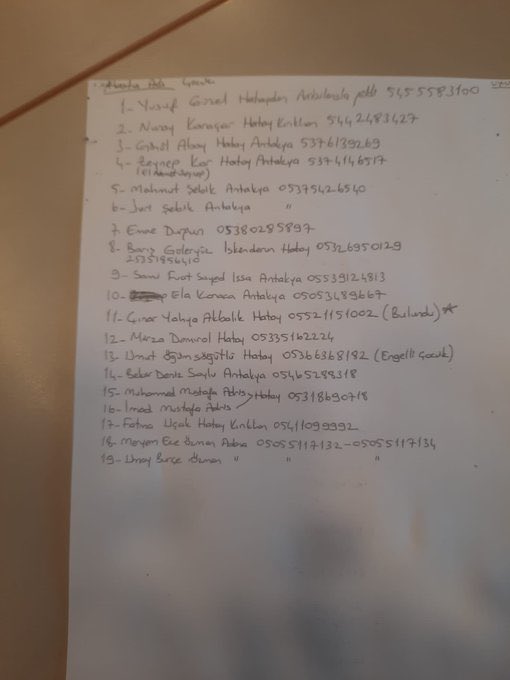 Çocuklar
1- Yusuf Güzel Hataydan Ambulansla geldi 5455583100
2- Nuray Karaçar Hatay Kırıkhan 5442483427
3- Gönül Abay Hatay Antakya 5376139269
4- Zeynep Kar Hatay Antakya 5374146517
5- Mahmut Şebik Antakya 05375426540
6- Şebik Antakya "
7. Emine Durpun 05380285897
8- Barış Göleryüz İskenderun Hatay 05326950129
25351856410
9- Sami Fuat Sayed Issa Antakya 05539124813
10- Ela Karaca Antakya 05053489667
11- Çınar Yahya Akbalık Hatay 05521151002 (Bulundu)*
12- Mirza Demirol Hatay 05335162224
13- Umut Özgün Söğütlü Hatay 05366368182 (Engelli Çocuk)
14- Bekir Deniz Soylu Antakya 05465288318
15- Muhammed Mustafa Adnis Hatay 05318690718
16- İmad Mustafa Adnis
17- Fatma Uçak Hatay Kırıkhan 05411099992
18- Meryem Ece Özmen Adana 05055117132-05055117134
19- Umay Burçe Özmen " " "